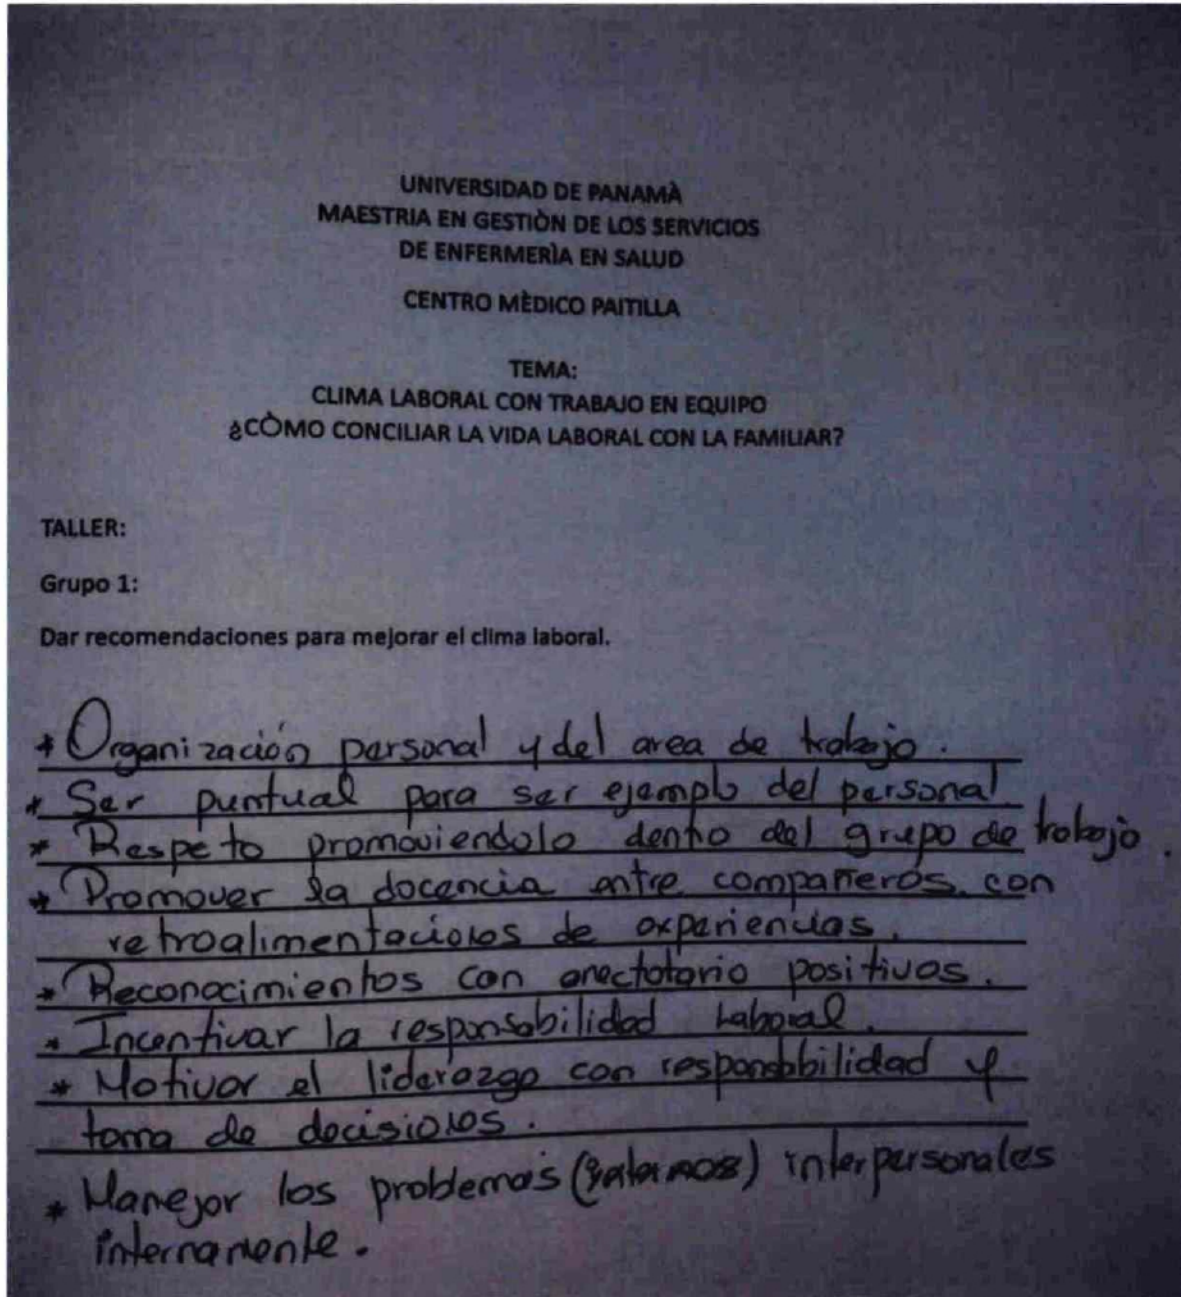 UNIVERSIDAD DE PANAMÀ
MAESTRIA EN GESTIÒN DE LOS SERVICIOS
DE ENFERMERÌA EN SALUD
CENTRO MÈDICO PAITILLA
TEMA:
CLIMA LABORAL CON TRABAJO EN EQUIPO
¿CÒMO CONCILIAR LA VIDA LABORAL CON LA FAMILIAR?
TALLER:
Grupo 1:
Dar recomendaciones para mejorar el clima laboral.
* Organización personal y del area de trabajo.
* Ser puntual para ser ejemplo del personal.
* Respeto promoviendolo dentro del grupo de trabajo.
* Promover la docencia entre compañeros con
retroalimentaciones de experiencias.
* Reconocimientos con anectotario positivos.
* Incentivar la responsabilidad Laboral.
* Motivar el liderazgo con responsabbilidad y
toma de decisiones.
* Manejar los problemas interpersonales
internamente.